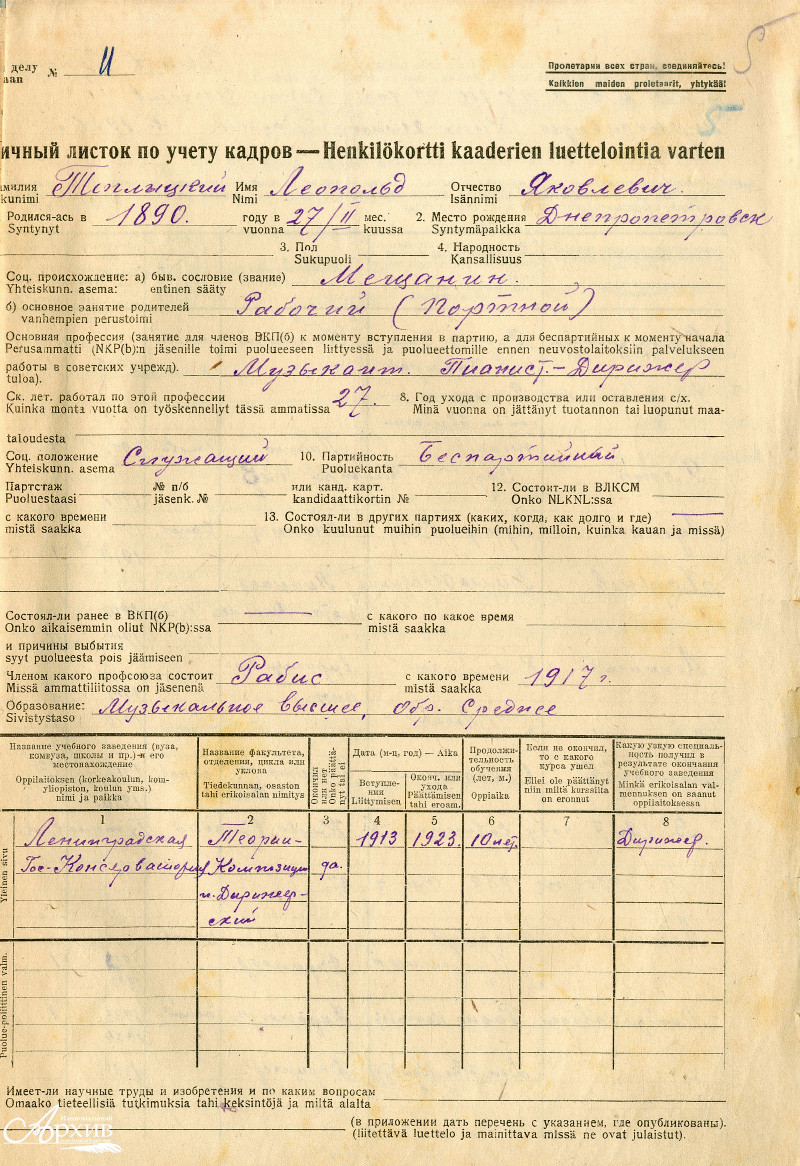 делу № 11
Пролетарии всех стран, соединяйтесь!
Kaikkien maiden proletaarit, yhtykää!
5
5
ичный листок по учету кадров — Henkilökortti kaaderien luettelointia varten
милия Теплицкий Имя Леопольд Отчество Яковлевич.
kunimi Nimi Isännimi
Родился-ась в 1890. году в 27/II мес. 2. Место рождения Днепропетровск
Syntynyt vuonna kuussa Syntymäpaikka
3. Пол 4. Народность
Sukupuoli Kansallisuus
Соц. происхождение: а) быв. сословие (звание) Мещанин.
Yhteiskunn. asema: entinen sääty
б) основное занятие родителей Рабочий (Портной)
vanhempien perustoimi
Основная профессия (занятие для членов ВКП(б) к моменту вступления в партию, а для беспартийных к моменту начала
Perusammatti (NKP(b):n jäsenille toimi puolueeseen liittyessä ja puolueettomille ennen neuvostolaitoksiin palvelukseen
работы в советских учрежд). Музыкант. Пианист.-Дирижер
tuloa).
Ск. лет. работал по этой профессии 27. 8. Год ухода с производства или оставления с/х.
Kuinka monta vuotta on työskennellyt tässä ammatissa Minä vuonna on jättänyt tuotannon tai luopunut maa-
taloudesta
Соц. положение Служащий 10. Партийность Беспартийный
Yhteiskunn. asema Puoluekanta
Партстаж № п/б или канд. карт. 12. Состоит-ли в ВЛКСМ
Puoluestaasi jäsenk. № kandidaattikortin № Onko NLKNL:ssa
с какого времени 13. Состоял-ли в других партиях (каких, когда, как долго и где) —
mistä saakka Onko kuulunut muihin puolueihin (mihin, milloin, kuinka kauan ja missä)
Состоял-ли ранее в ВКП(б) — с какого по какое время
Onko aikaisemmin ollut NKP(b):ssa mistä saakka
и причины выбытия
syyt puolueesta pois jäämiseen
Членом какого профсоюза состоит Рабис с какого времени 1917 г.
Missä ammattiliitossa on jäsenenä mistä saakka
Образование: Музыкальное высшее, Обр. Среднее
Sivistystaso
Название учебного заведения (вуза, комвуза, школы и пр.) и его местонахождение
Oppilaitoksen (korkeakoulun, kom-yliopiston, koulun yms.) nimi ja paikka
Название факультета, отделения, цикла или уклона
Tiedekunnan, osaston tahi erikoisalan nimitys
Окончил или нет
Onko päättänyt tai ei
Дата (м-ц, год) — Aika
Вступления
Liittymisen
Оконч. или ухода
Päättämisen tahi eroam.
Продолжительность обучения (лет, м.)
Oppiaika
Если не окончил, то с какого курса ушел
Ellei ole päättänyt niin miltä kurssilta on eronnut
Какую узкую специальность получил в результате окончания учебного заведения
Minkä erikoisalan valmennuksen on saanut oppilaitoksessa
1 2 3 4 5 6 7 8
Ленинградская Теории- 1913 1923. 10 лет. Дирижер.
Гос-Консерватория Композиции да.
и. Дирижер-
ский
Yleinen sivu
Puolue-poliittinen valm.
Имеет-ли научные труды и изобретения и по каким вопросам
Omaako tieteellisiä tutkimuksia tahi keksintöjä ja miltä alalta
(в приложении дать перечень с указанием, где опубликованы).
(liitettävä luettelo ja mainittava missä ne ovat julaistut).
Национальный
Архив